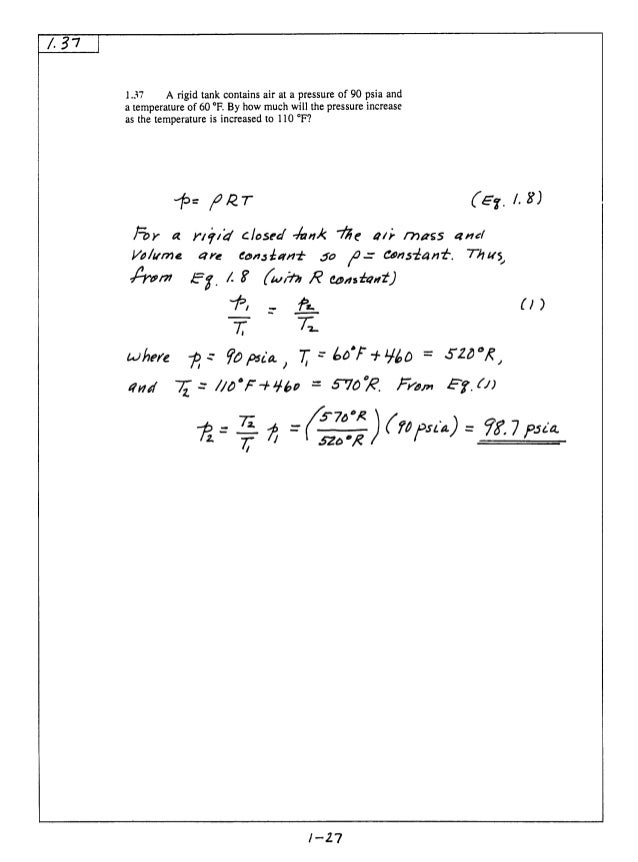 1.37
1.37 A rigid tank contains air at a pressure of 90 psia and
a temperature of 60 °F. By how much will the pressure increase
as the temperature is increased to 110 °F?
p = ρRT (Eq. 1.8)
For a rigid closed tank the air mass and
volume are constant so ρ = constant. Thus,
from Eq. 1.8 (with R constant)
p₁/T₁ = p₂/T₂ (1)
where p₁ = 90 psia, T₁ = 60°F + 460 = 520°R,
and T₂ = 110°F + 460 = 570°R. From Eq. (1)
p₂ = T₂/T₁ p₁ = (570°R/520°R)(90 psia) = 98.7 psia
1-27